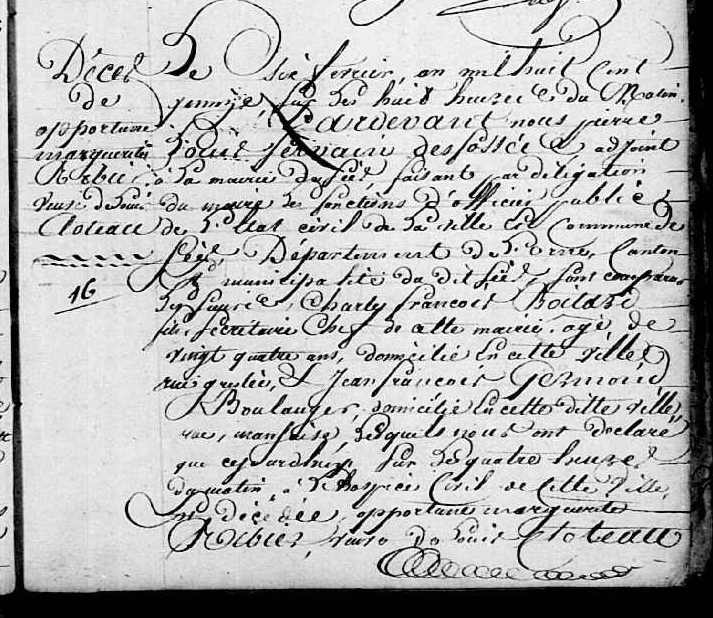 Décès
de
opportune
marguerite
Rebut
veuve de Louis
Cloteau
16
Le six fevrier, an mil huit Cent
sur les huit heures du Matin
Pardevant nous pierre
Louis Gervain desfossée adjoint
à la mairie de Séez, faisant par délégation
du maire les fonctions d'officier public
de l'Etat civil de la ville Et Commune de
Séez, Département de L'orne, Canton
Et municipalité du dit Séez, sont comparus
Charles françois
secretaire Chef de cette mairie, agé de
vingt quatre ans, domicilié En cette ville
rue, & Jean francois
Boulanger, domicilié En cette ditte ville,
rue, Lesquels nous ont declaré
que cejourdhuy sur Les quatre heures
du matin, à L'hospice Civil de Cette Ville,
Est décédée, opportune marguerite
veuve de Louis Cloteau